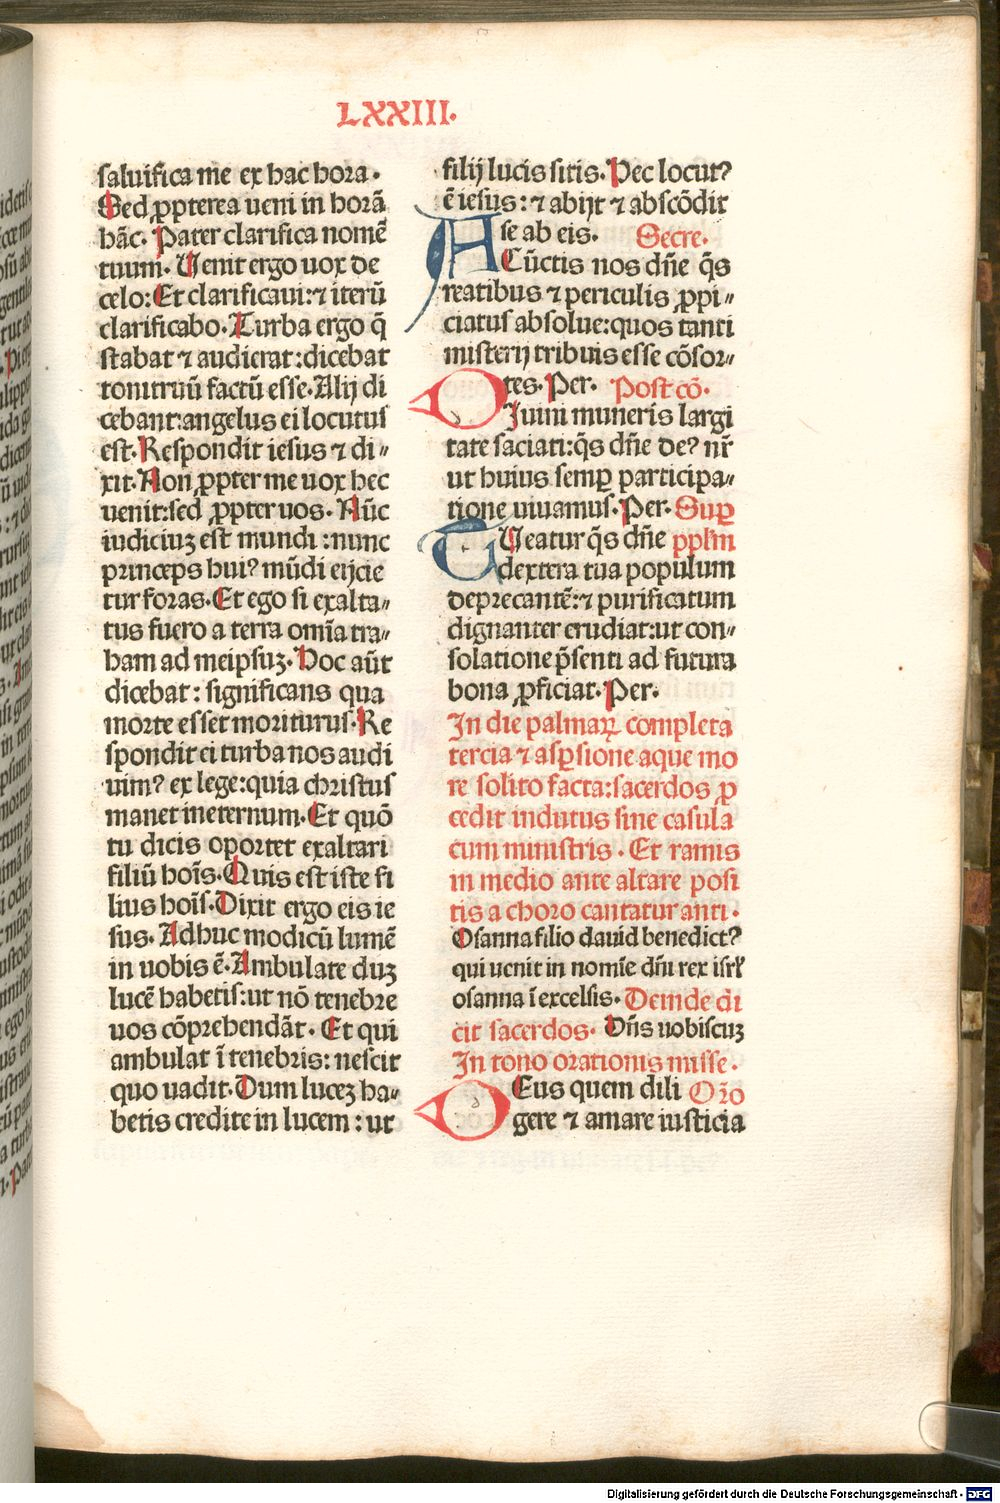 LXXIII.
saluifica me ex hac hora.
Sed ꝓpterea ueni in horā
hāc. Pater clarifica nomē
tuum. Uenit ergo uox de
celo: Et clarificaui: ⁊ iterū
clarificabo. Turba ergo q̄
stabat ⁊ audierat: dicebat
tonitruū factū esse. Alij di
cebant: angelus ei locutus
est. Respondit iesus ⁊ di〃
xit. Non ꝓpter me uox hec
uenit: sed ꝓpter uos. Nūc
iudiciuꝫ est mundi: nunc
princeps huiꝰ mūdi eijcie
tur foras. Et ego si exalta〃
tus fuero a terra omīa tra〃
ham ad meipsuꝫ. Hoc aūt
dicebat: significans qua
morte esset moriturus. Re
spondit ei turba nos audi
uimꝰ ex lege: quia christus
manet ineternum. Et quō
tu dicis oportet exaltari
filiū hoīs. Quis est iste fi
lius hoīs. Dixit ergo eis ie
sus. Adhuc modicū lumē
in uobis ē. Ambulate duꝫ
lucē habetis: ut nō tenebre
uos cōprehendāt. Et qui
ambulat ī tenebris: nescit
quo uadit. Dum luceꝫ ha〃
betis credite in lucem: ut
filij lucis sitis. Hec locutꝰ
ē iesus: ⁊ abijt ⁊ abscōdit
se ab eis. Secre.
A Cūctis nos dn̄e q̄s
reatibus ⁊ periculis ꝓpi〃
ciatus absolue: quos tanti
misterij tribuis esse cōsor〃
tes. Per. Post cō.
D Iuini muneris largi
tate saciati: q̄s dn̄e deꝰ nr̄
ut huius semꝑ participa〃
tione uiuamus. Per. Suꝑ
T Ueatur q̄s dn̄e pplm̄
dextera tua populum
deprecantē: ⁊ purificatum
dignanter erudiat: ut con〃
solatione p̄senti ad futura
bona ꝓficiat. Per.
In die palmaꝝ completa
tercia ⁊ asꝑsione aque mo
re solito facta: sacerdos ꝓ
cedit indutus sine casula
cum ministris. Et ramis
in medio ante altare posi
tis a choro cantatur anti.
Osanna filio dauid benedictꝰ
qui uenit in nomīe dn̄i rex isrl̄
osanna ī excelsis. Deinde di
cit sacerdos. Dn̄s uobiscuꝫ
In tono orationis misse.
D Eus quem dili Oro
gere ⁊ amare iusticia
Digitalisierung gefördert durch die Deutsche Forschungsgemeinschaft - DFG